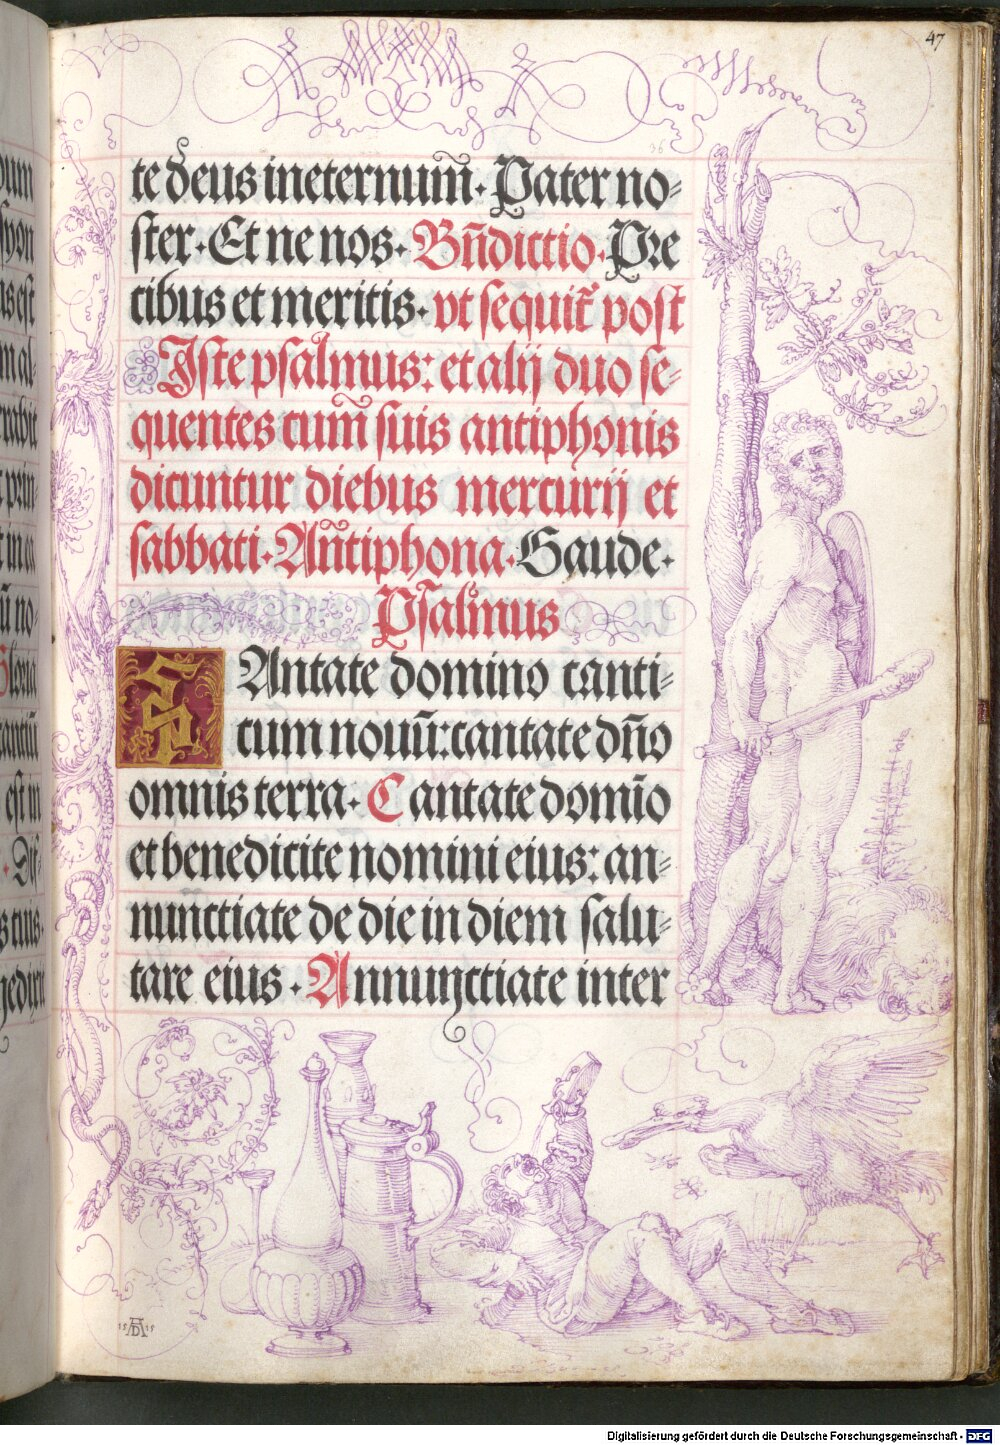 47
36
te deus in eternum̄. Pater no⸗
ster. Et ne nos. Bn̄dictio. Pre
cibus et meritis. vt sequit̄ post
Iste psalmus: et alij duo se⸗
quentes cum̄ suis antiphonis
dicuntur diebus mercurij et
sabbati. An̄tiphona. Gaude.
Psalmus
CAntate domino canti⸗
cum nouū: cantate dn̄o
omnis terra. Cantate domīo
et benedicite nomini eius: an⸗
nunctiate de die in diem salu⸗
tare eius. Annunctiate inter
15 AD 15
Digitalisierung gefördert durch die Deutsche Forschungsgemeinschaft - DFG